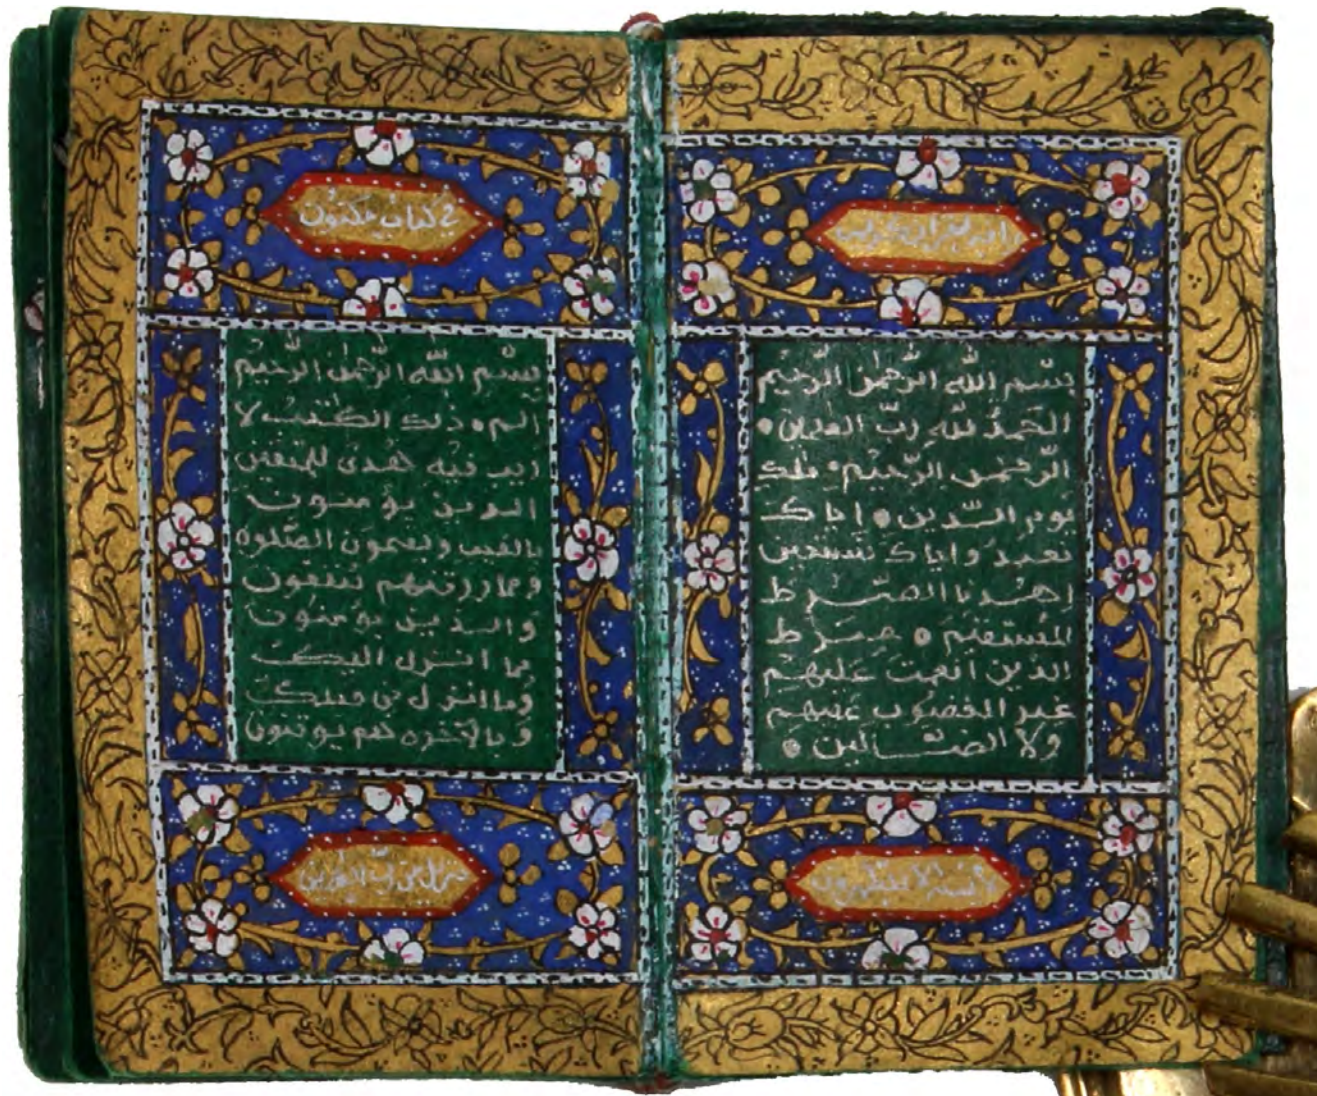 إنه لقرآن كريم
بسم الله الرَّحمٰن الرَّحيم
الحمدُ للّٰهِ ربّ العلمين
الرَّحمٰن الرَّحيم ملك
يوم الدّين اياك
نعبدُ واياك نستعين
اِهدنا الصّرط
المُستقيم صرط
الذين انعمت عَليهم
غير المغضوب عَليهم
ولا الضّالين
لا يمسه الا المطهرون
في كتاب مكنون
بسم الله الرَّحمٰن الرَّحيم
الم ذلك الكتٰبُ لا
ريب فيه هُدىً للمتقين
الذين يؤمنون
بالغيب ويقيمون الصَّلوة
ومما رزقنهم يُنفقون
والذين يؤمنون
بما انزل اليك
وما انزل من قبلك
وبالآخرة هم يوقنون
تنزيل من ربّ العٰلمين